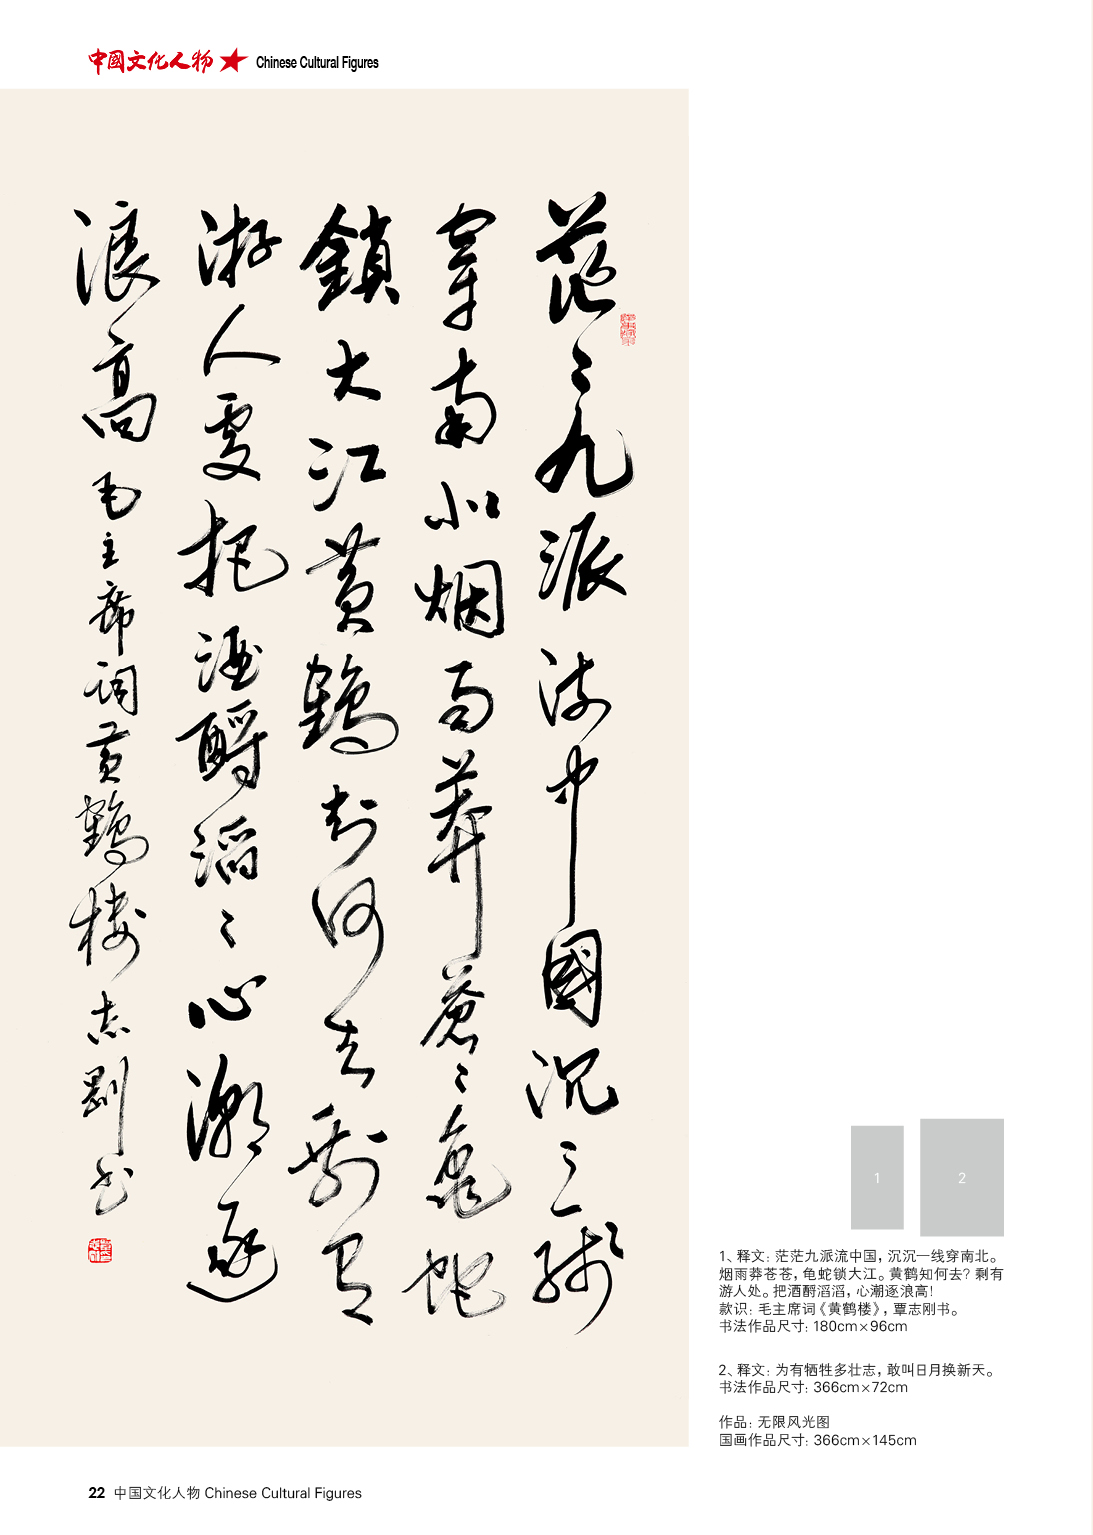 中國文化人物 Chinese Cultural Figures
茫〻九派流中國沉〻一线
穿南北烟雨莽蒼〻龜蛇
鎖大江黄鶴知何去剩有
游人處把酒酹滔〻心潮逐
浪高 毛主席词黄鶴楼 志剛书
1
2
1、释文：茫茫九派流中国，沉沉一线穿南北。
烟雨莽苍苍，龟蛇锁大江。黄鹤知何去？剩有
游人处。把酒酹滔滔，心潮逐浪高！
款识：毛主席词《黄鹤楼》，覃志刚书。
书法作品尺寸：180cm×96cm
2、释文：为有牺牲多壮志，敢叫日月换新天。
书法作品尺寸：366cm×72cm
作品：无限风光图
国画作品尺寸：366cm×145cm
22 中国文化人物 Chinese Cultural Figures